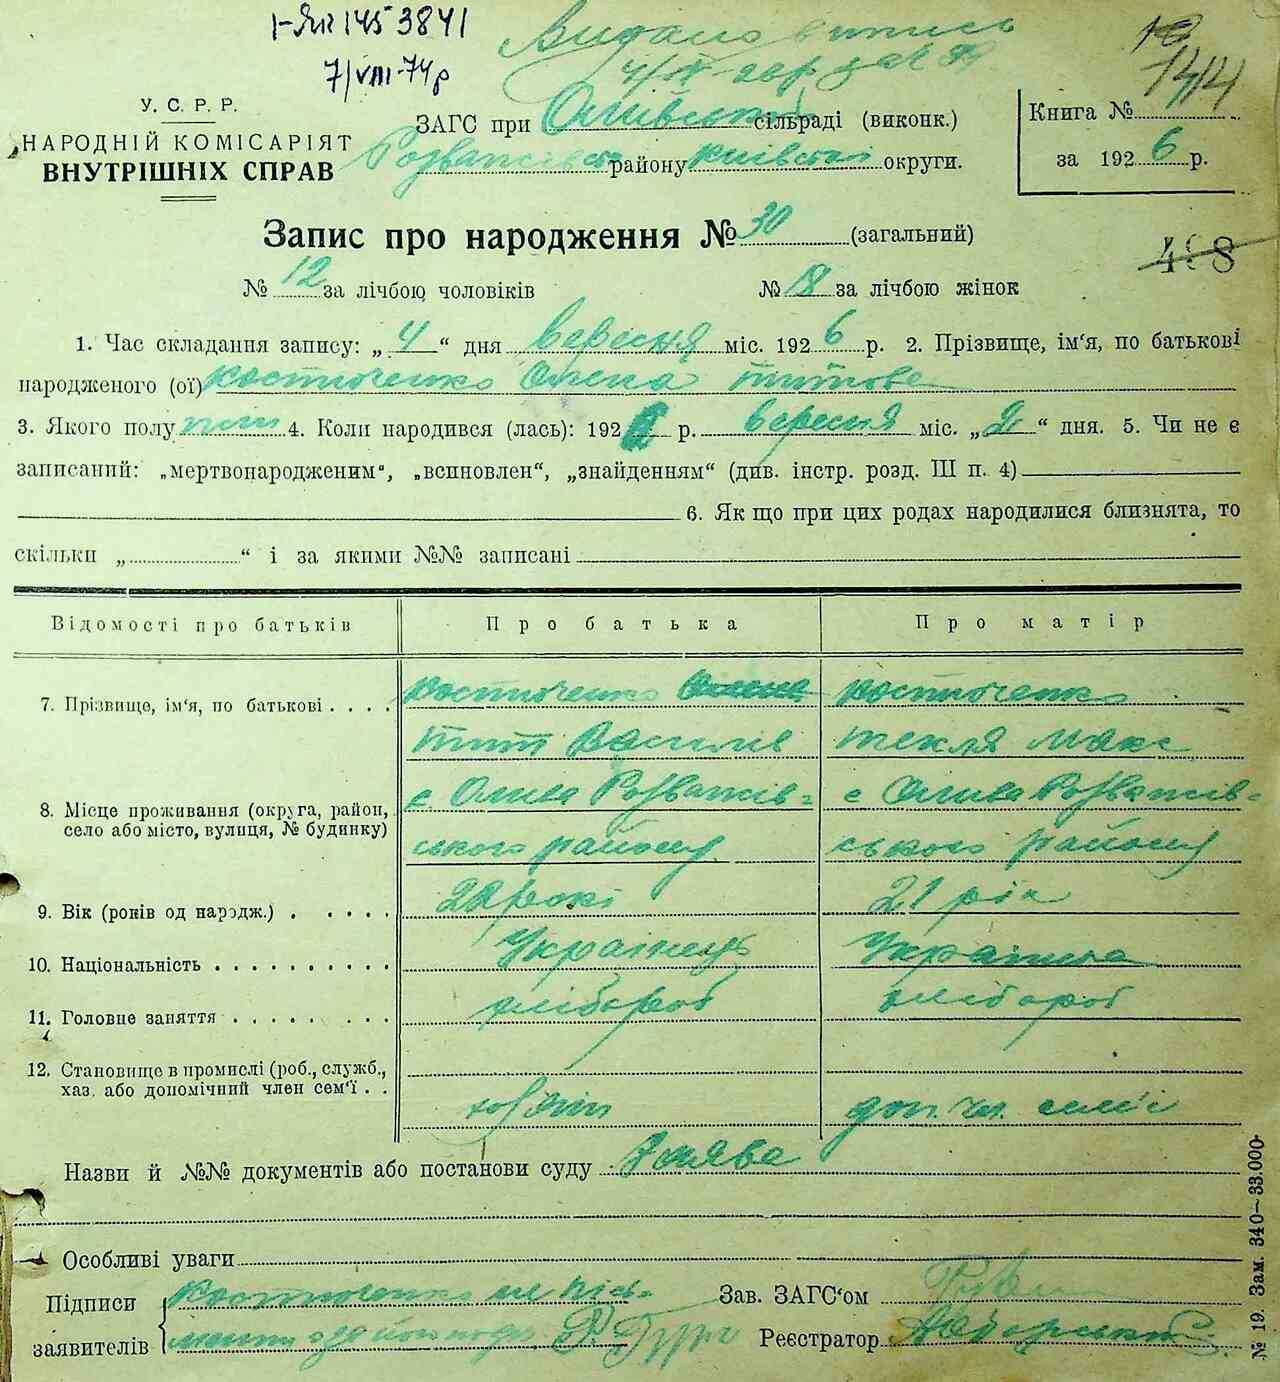 I-ЯИ 145 3841
7/VIII-74р
Видано випись
У. С. Р. Р.
НАРОДНІЙ КОМІСАРІЯТ
ВНУТРІШНІХ СПРАВ
ЗАГС при Оливській сільраді (виконк.)
Розважівськ району Київської округи.
Книга № 1414
за 1926 р.
Запис про народження № 30 (загальний)
498
№ 12 за лічбою чоловіків № 18 за лічбою жінок
1. Час складання запису: „4“ дня вересня міс. 1926 р. 2. Прізвище, ім'я, по батькові
народженого (ої) Костюченко Олена Титова
3. Якого полу жін 4. Коли народився (лась): 1926 р. вересня міс. „2“ дня. 5. Чи не є
записаний: „мертвонародженим“, „всиновлен“, „знайденням“ (див. інстр. розд. III п. 4)
6. Як що при цих родах народилися близнята, то
скільки „ “ і за якими №№ записані
Відомості про батьків Про батька Про матір
7. Прізвище, ім'я, по батькові Костюченко Олена Костюченко
Тит Василів Текля Макс
8. Місце проживання (округа, район, с. Олива Розважів= с Олива Розважів=
село або місто, вулиця, № будинку) ського району ського району
9. Вік (років од народж.) 22 роки 21 рік
10. Національність Українець Українка
11. Головне заняття хлібороб хлібороб
12. Становище в промислі (роб., служб.,
хаз. або допомічний член сем'ї хозяїн доп. чл. сем'ї
Назви й №№ документів або постанови суду Заява
Особливі уваги
Підписи Костюченко не пись-
заявителів
Зав. ЗАГС'ом
Реєстратор
№ 19. Зам. 340—33.000